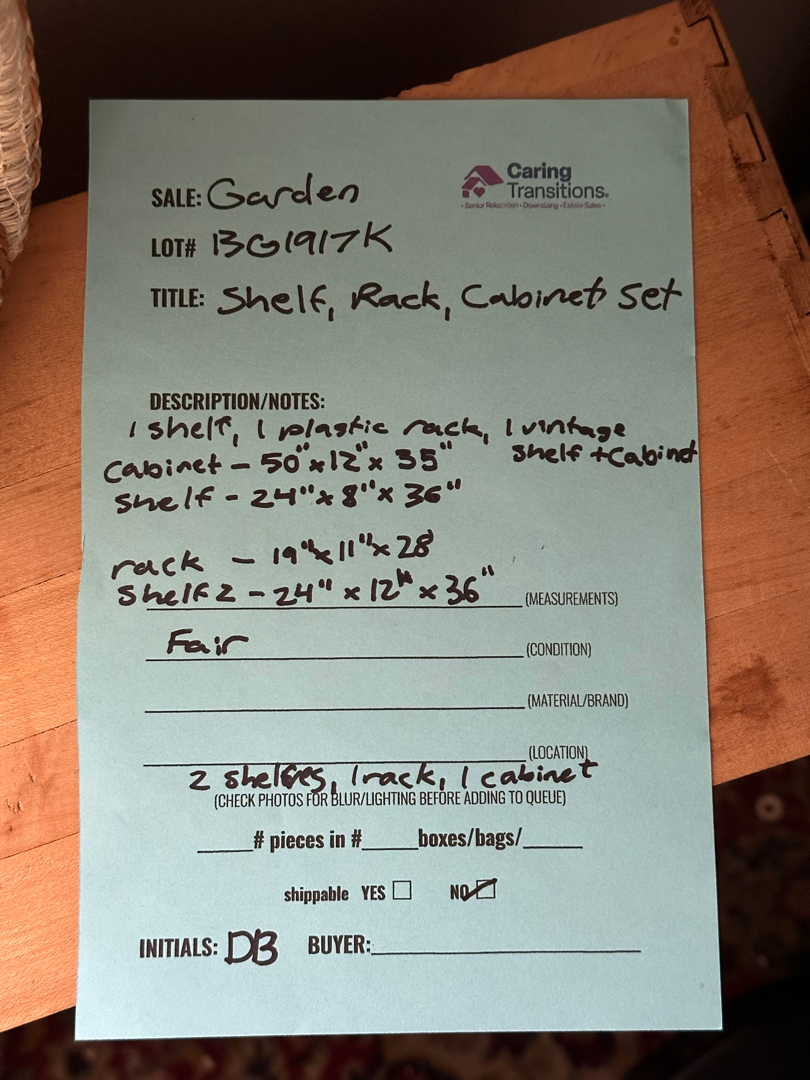 Caring
Transitions®
• Senior Relocation • Downsizing • Estate Sales •
SALE: Garden
LOT# BG1917K
TITLE: Shelf, Rack, Cabinet Set
DESCRIPTION/NOTES:
1 shelf, 1 plastic rack, 1 vintage
shelf + Cabinet
Cabinet – 50" x 12" x 35"
Shelf - 24" x 8" x 36"
rack – 19" x 11" x 28"
Shelf 2 – 24" x 12" x 36" (MEASUREMENTS)
Fair (CONDITION)
(MATERIAL/BRAND)
(LOCATION)
2 shelves, 1 rack, 1 cabinet
(CHECK PHOTOS FOR BLUR/LIGHTING BEFORE ADDING TO QUEUE)
____# pieces in #____boxes/bags/____
shippable YES ☐ NO ☑
INITIALS: DB BUYER:____